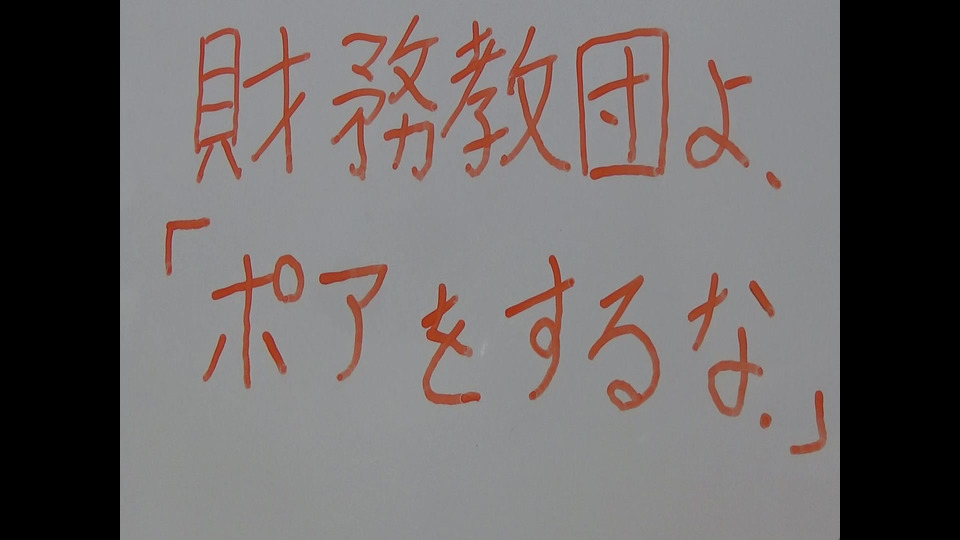 財務教団よ、
「ポアをするな.」